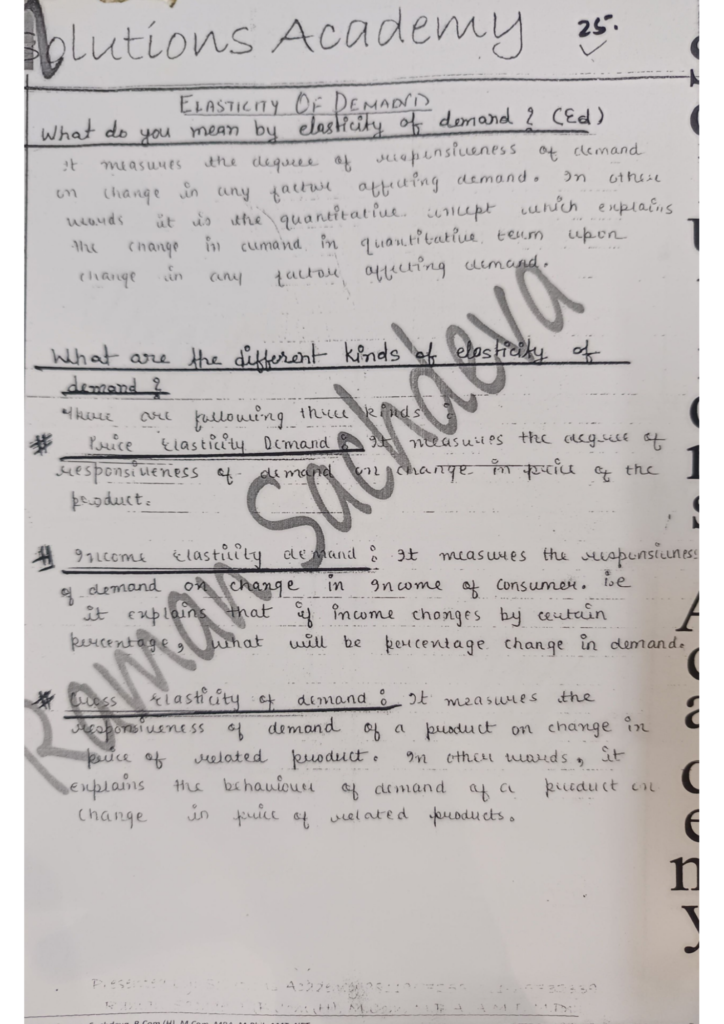 Solutions Academy 25.
ELASTICITY OF DEMAND
What do you mean by elasticity of demand ? (Ed)
it measures the degree of responsiveness of demand
on change in any factor affecting demand. In other
words it is the quantitative concept which explains
the change in demand in quantitative term upon
change in any factor affecting demand.
What are the different kinds of elasticity of
demand ?
There are following three kinds :
# Price Elasticity Demand : It measures the degree of
responsiveness of demand on change in price of the
product.
# Income Elasticity demand : It measures the responsivness
of demand on change in Income of consumer. i.e
it explains that if income changes by certain
percentage, what will be percentage change in demand.
# Cross Elasticity of demand : It measures the
responsiveness of demand of a product on change in
price of related product. In other words, it
explains the behaviour of demand of a product on
change in price of related products.
Raman Sachdeva
Academy